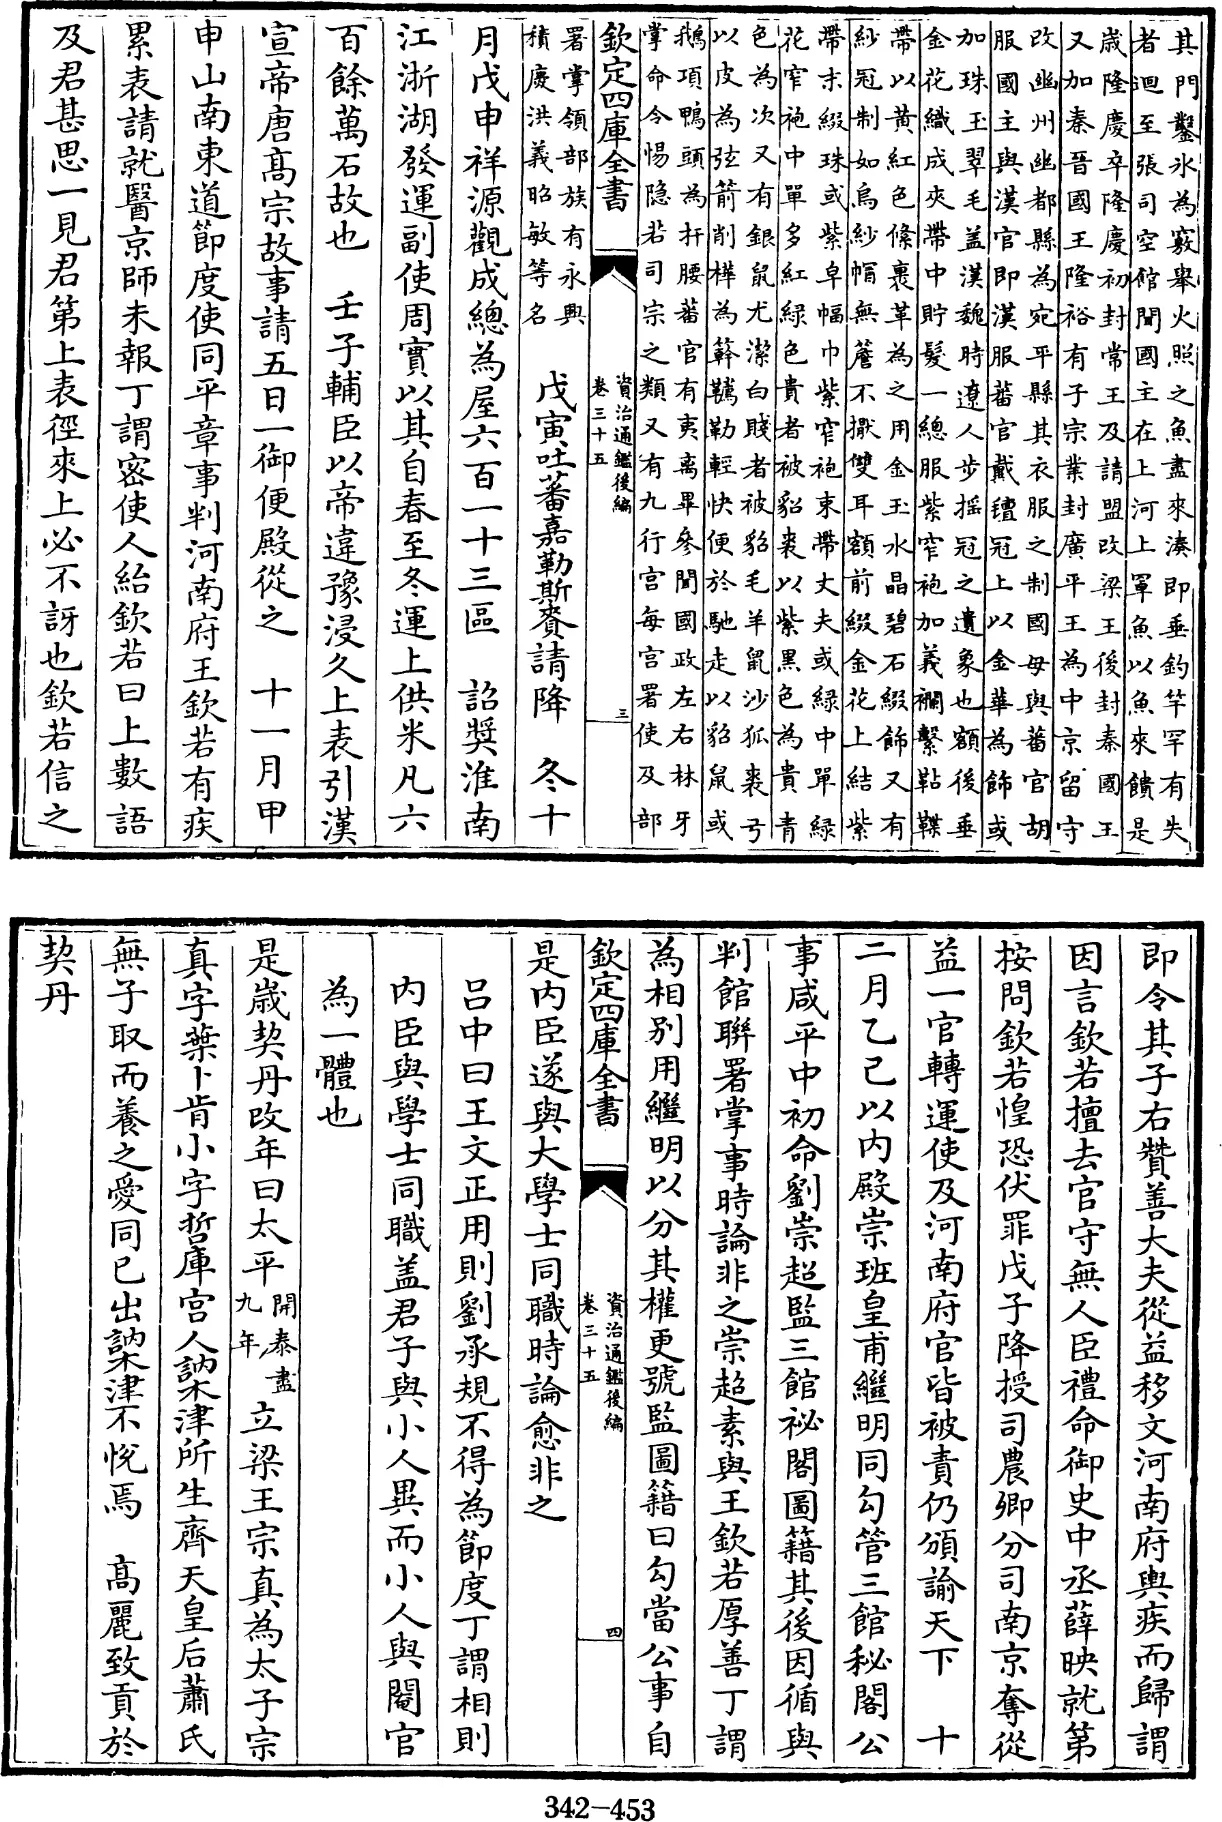 其門鑿氷為竅舉火照之魚盡來湊即垂釣竿罕有失
者迴至張司空館聞國主在上河上罩魚以魚來饋是
嵗隆慶卒隆慶初封常王及請盟改梁王後封秦國王
又加秦晉國王隆裕有子宗業封廣平王為中京留守
改幽州幽都縣為宛平縣其衣服之制國母與蕃官胡
服國主與漢官即漢服蕃官戴氊冠上以金華為飾或
加珠玉翠毛盖漢魏時遼人步摇冠之遺象也額後垂
金花織成夾帶中貯髮一總服紫窄袍加義襴繫鞊鞢
帶以黄紅色絛裹革為之用金玉水晶碧石綴飾又有
紗冠制如烏紗帽無簷不擫雙耳額前綴金花上結紫
帶末綴珠或紫皁幅巾紫窄袍束帶丈夫或綠中單綠
花窄袍中單多紅綠色貴者被貂裘以紫黑色為貴青
色為次又有銀鼠尤潔白賤者被貂毛羊鼠沙狐裘弓
以皮為弦箭削樺為簳韉勒輕快便於馳走以貂鼠或
鵝項鴨頭為扞腰蕃官有夷离畢參聞國政左右林牙
掌命令惕隐若司宗之類又有九行宫每宫署使及部
欽定四庫全書 資治通鑑後編 卷三十五 三
署掌領部族有永興
積慶洪義昭敏等名 戊寅吐蕃嘉勒斯賚請降 冬十
月戊申祥源觀成總為屋六百一十三區 詔奬淮南
江浙湖發運副使周實以其自春至冬運上供米凡六
百餘萬石故也 壬子輔臣以帝違豫浸久上表引漢
宣帝唐高宗故事請五日一御便殿從之 十一月甲
申山南東道節度使同平章事判河南府王欽若有疾
累表請就醫京師未報丁謂密使人紿欽若曰上數語
及君甚思一見君第上表徑來上必不訝也欽若信之
即令其子右贊善大夫從益移文河南府輿疾而歸謂
因言欽若擅去官守無人臣禮命御史中丞薛映就第
按問欽若惶恐伏罪戊子降授司農卿分司南京奪從
益一官轉運使及河南府官皆被責仍頒諭天下 十
二月乙巳以内殿崇班皇甫繼明同勾管三館秘閣公
事咸平中初命劉崇超監三館祕閣圖籍其後因循與
判館聯署掌事時論非之崇超素與王欽若厚善丁謂
為相别用繼明以分其權更號監圖籍曰勾當公事自
欽定四庫全書 資治通鑑後編 卷三十五 四
是内臣遂與大學士同職時論愈非之
吕中曰王文正用則劉承規不得為節度丁謂相則
内臣與學士同職盖君子與小人異而小人與閹官
為一體也
是嵗契丹改年曰太平開泰盡九年 立梁王宗真為太子宗
真字葉卜肯小字哲庫宫人訥木津所生齊天皇后蕭氏
無子取而養之愛同己出訥木津不悅焉 高麗致貢於
契丹
342-453